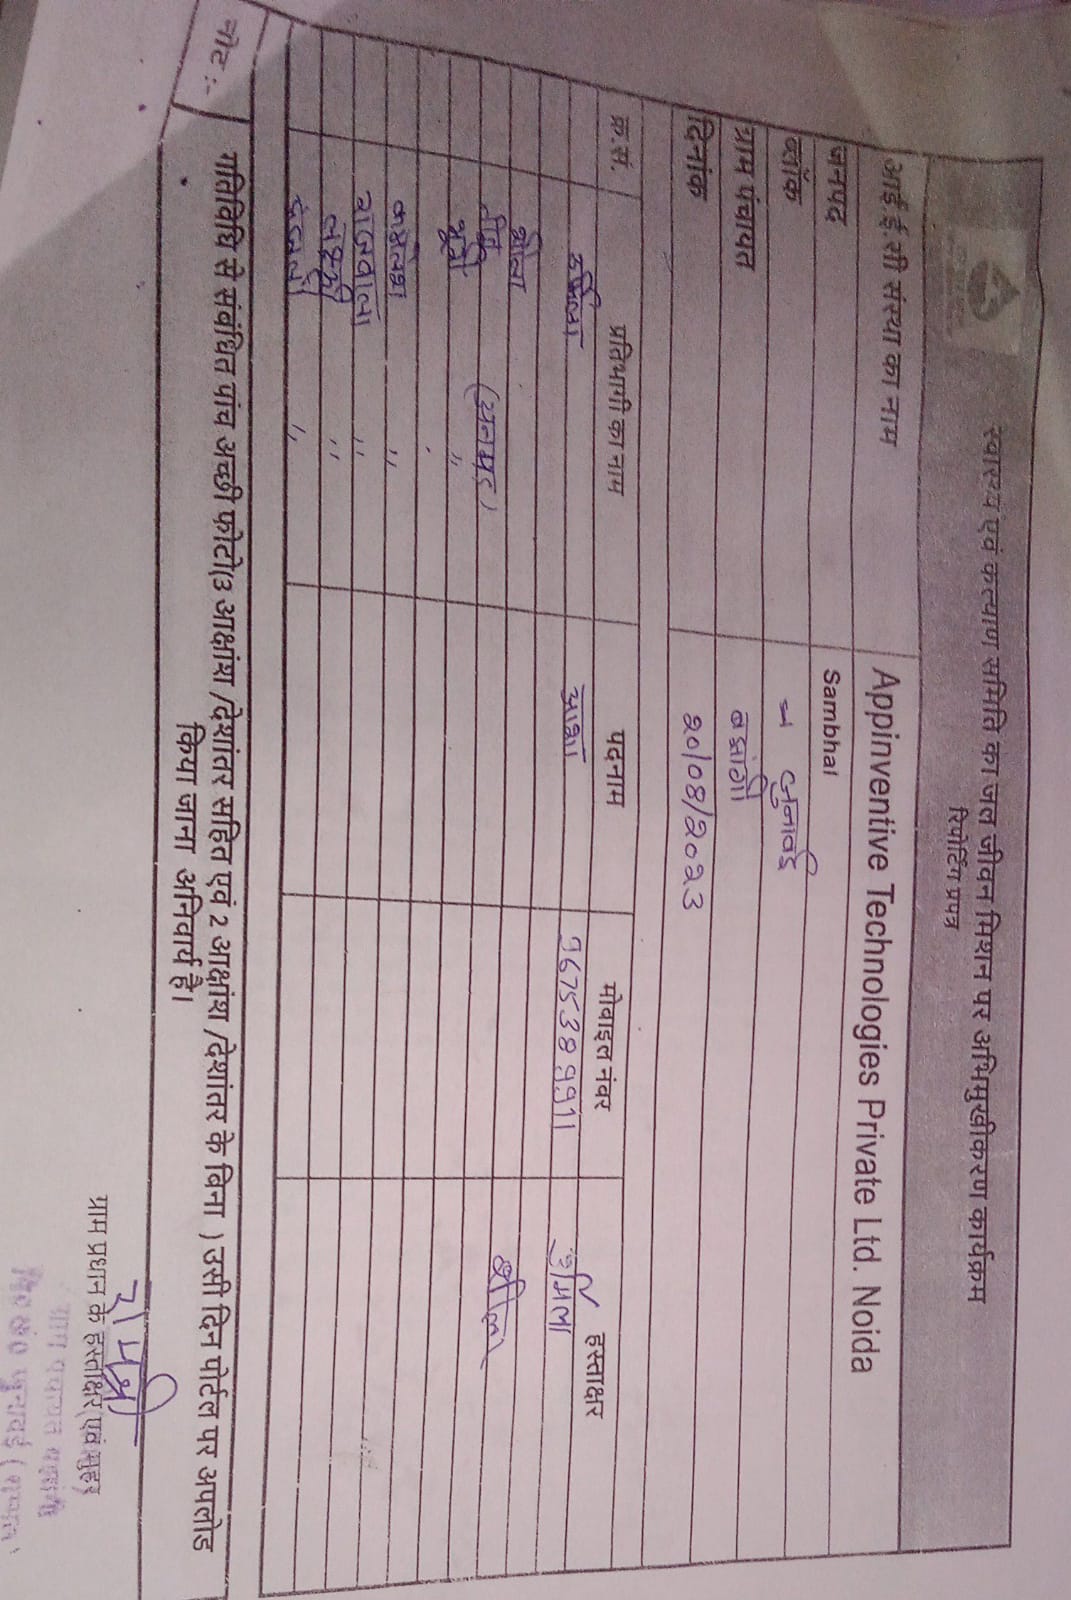 स्वास्थ्य एवं कल्याण समिति का जल जीवन मिशन पर अभिमुखीकरण कार्यक्रम
रिपोर्टिंग प्रपत्र
आई.ई.सी संस्था का नाम Appinventive Technologies Private Ltd. Noida
जनपद Sambhal
ब्लॉक जुनावई
ग्राम पंचायत
दिनांक 20/08/2023
क्र.सं. प्रतिभागी का नाम पदनाम मोबाइल नंबर हस्ताक्षर
उर्मिला आशा 9675389911 उर्मिला
शीला शीला
(अनपढ़)
"
कमलेश "
"
"
"
नोट :- गतिविधि से संबंधित पांच अच्छी फोटो(3 आक्षांश /देशांतर सहित एवं 2 आक्षांश /देशांतर के बिना ) उसी दिन पोर्टल पर अपलोड
किया जाना अनिवार्य है।
ग्राम प्रधान के हस्ताक्षर एवं मुहर
ग्राम पंचायत
वि०खं० जुनावई